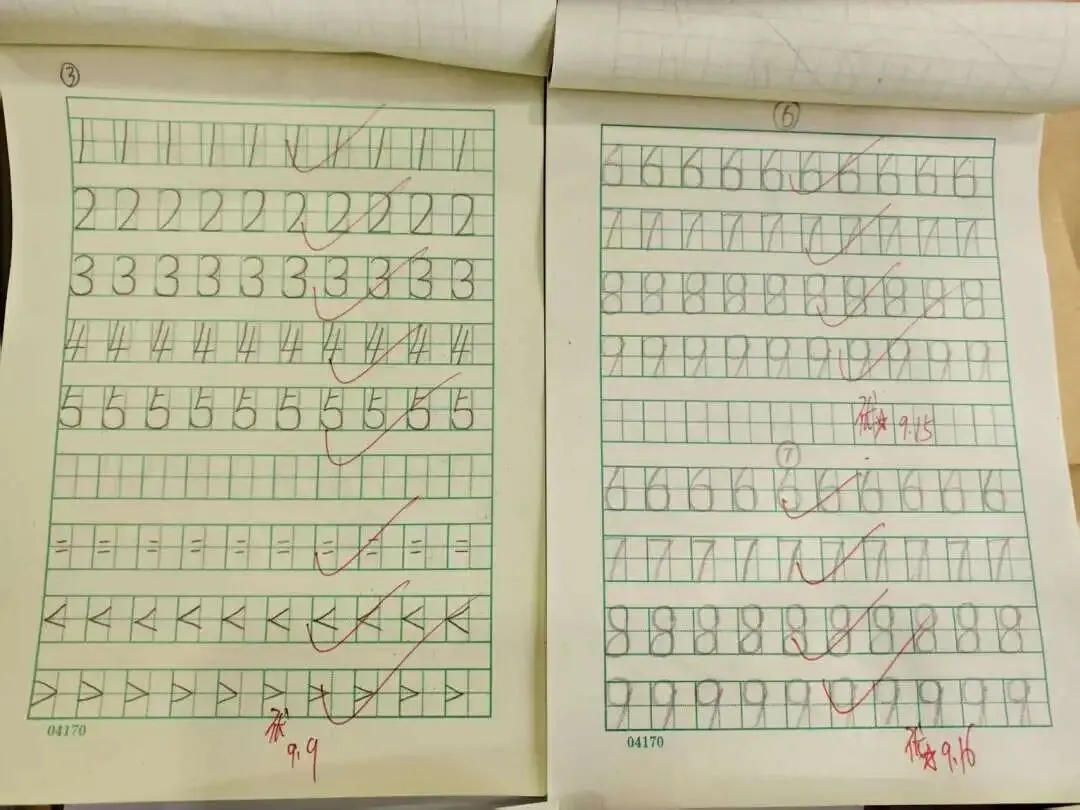 ③
1 1 1 1 1 1 1 1 1 1
2 2 2 2 2 2 2 2 2 2
3 3 3 3 3 3 3 3 3 3
4 4 4 4 4 4 4 4 4 4
5 5 5 5 5 5 5 5 5 5
= = = = = = = = = =
< < < < < < < < < <
> > > > > > > > > >
04170
9.9
⑥
6 6 6 6 6 6 6 6 6 6
7 7 7 7 7 7 7 7 7 7
8 8 8 8 8 8 8 8 8 8
9 9 9 9 9 9 9 9 9 9
优☆ 9.15
⑦
6 6 6 6 6 6 6 6 6 6
7 7 7 7 7 7 7 7 7 7
8 8 8 8 8 8 8 8 8 8
9 9 9 9 9 9 9 9 9 9
04170
优☆ 9.16